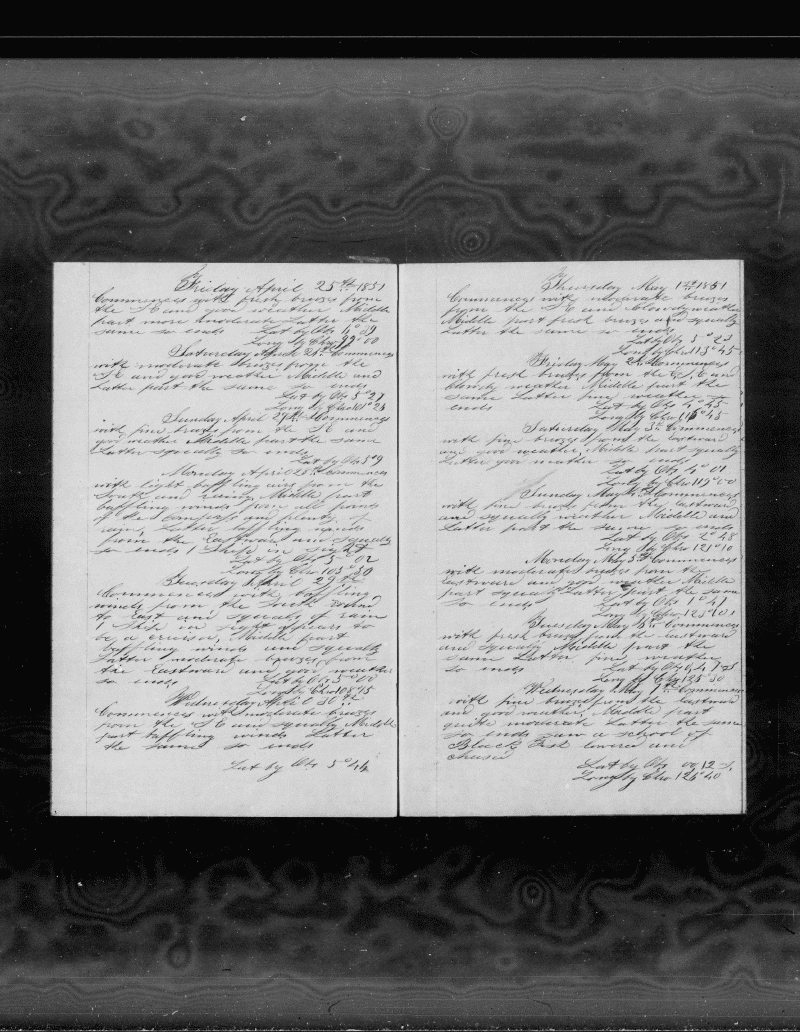 Friday April 25th 1851
Commences with fresh breezes from
the S E and good weather Middle
part more moderate Latter the
same so ends Lat by Obs 6° 09
Long by Chro 99° 00
Saturday April 26th Commences
with moderate breezes from the
S E and good weather Middle and
Latter part the same so ends
Lat by Obs 5° 27
Long by Chro 101° 24
Sunday April 27th Commences
with fine breezes from the S E and
good weather Middle part the same
Latter squally so ends
Lat by Obs 5° 9
Monday April 28th Commences
with light baffling airs from the
South and rainy Middle part
baffling winds from all parts
of the Compass and plenty of
rain, Latter baffling winds
from the Eastward and squally
so ends 1 Ship in sight
Lat by Obs 5° 02
Long by Chro 103° 30
Tuesday April 29th
Commences with baffling
winds from the South round
to East and squalls of rain
1 Ship in sight appears to
be a cruiser, Middle part
baffling winds and squally
Latter moderate breezes from
the Eastward and good weather
so ends Lat by Obs 5° 00
Long by Chro 105° 45
Wednesday April 30th
Commences with moderate breezes
from the S E and squally Middle
part baffling winds Latter
the same so ends
Lat by Obs 5° 44
Thursday May 1st 1851
Commences with moderate breezes
from the S E and cloudy weather
Middle part fresh breezes and squally
Latter the same so ends
Lat by Obs 5° 23
Long by Chro 113° 45
Friday May 2d Commences
with fresh breezes from the S E and
cloudy weather Middle part the
same Latter fine weather so
ends Lat by Obs 4° 45
Long by Chro 116° 45
Saturday May 3d Commences
with fine breezes from the eastward
and good weather, Middle part squally
Latter good weather so ends
Lat by Obs 4° 01
Long by Chro 119° 00
Sunday May 4th Commences
with fine breezes from the Eastward
and squally weather Middle and
Latter part the same so ends
Lat by Obs 2° 48
Long by Chro 121° 10
Monday May 5th Commences
with moderate breezes from the
Eastward and good weather Middle
part squally Latter part the same
so ends Lat by Obs 1° 41
Long by Chro 123° 01
Tuesday May 6th Commences
with fresh breezes from the eastward
and squally Middle part the
same Latter fine weather
so ends Lat by Obs
Long by Chro 125° 30
Wednesday May 7th Commences
with fine breezes from the eastward
and good weather, Middle part
quite moderate Latter the same
so ends saw a school of
Black Fish lowered and
chased
Lat by Obs 00 12 S,
Long by Chro 126° 40